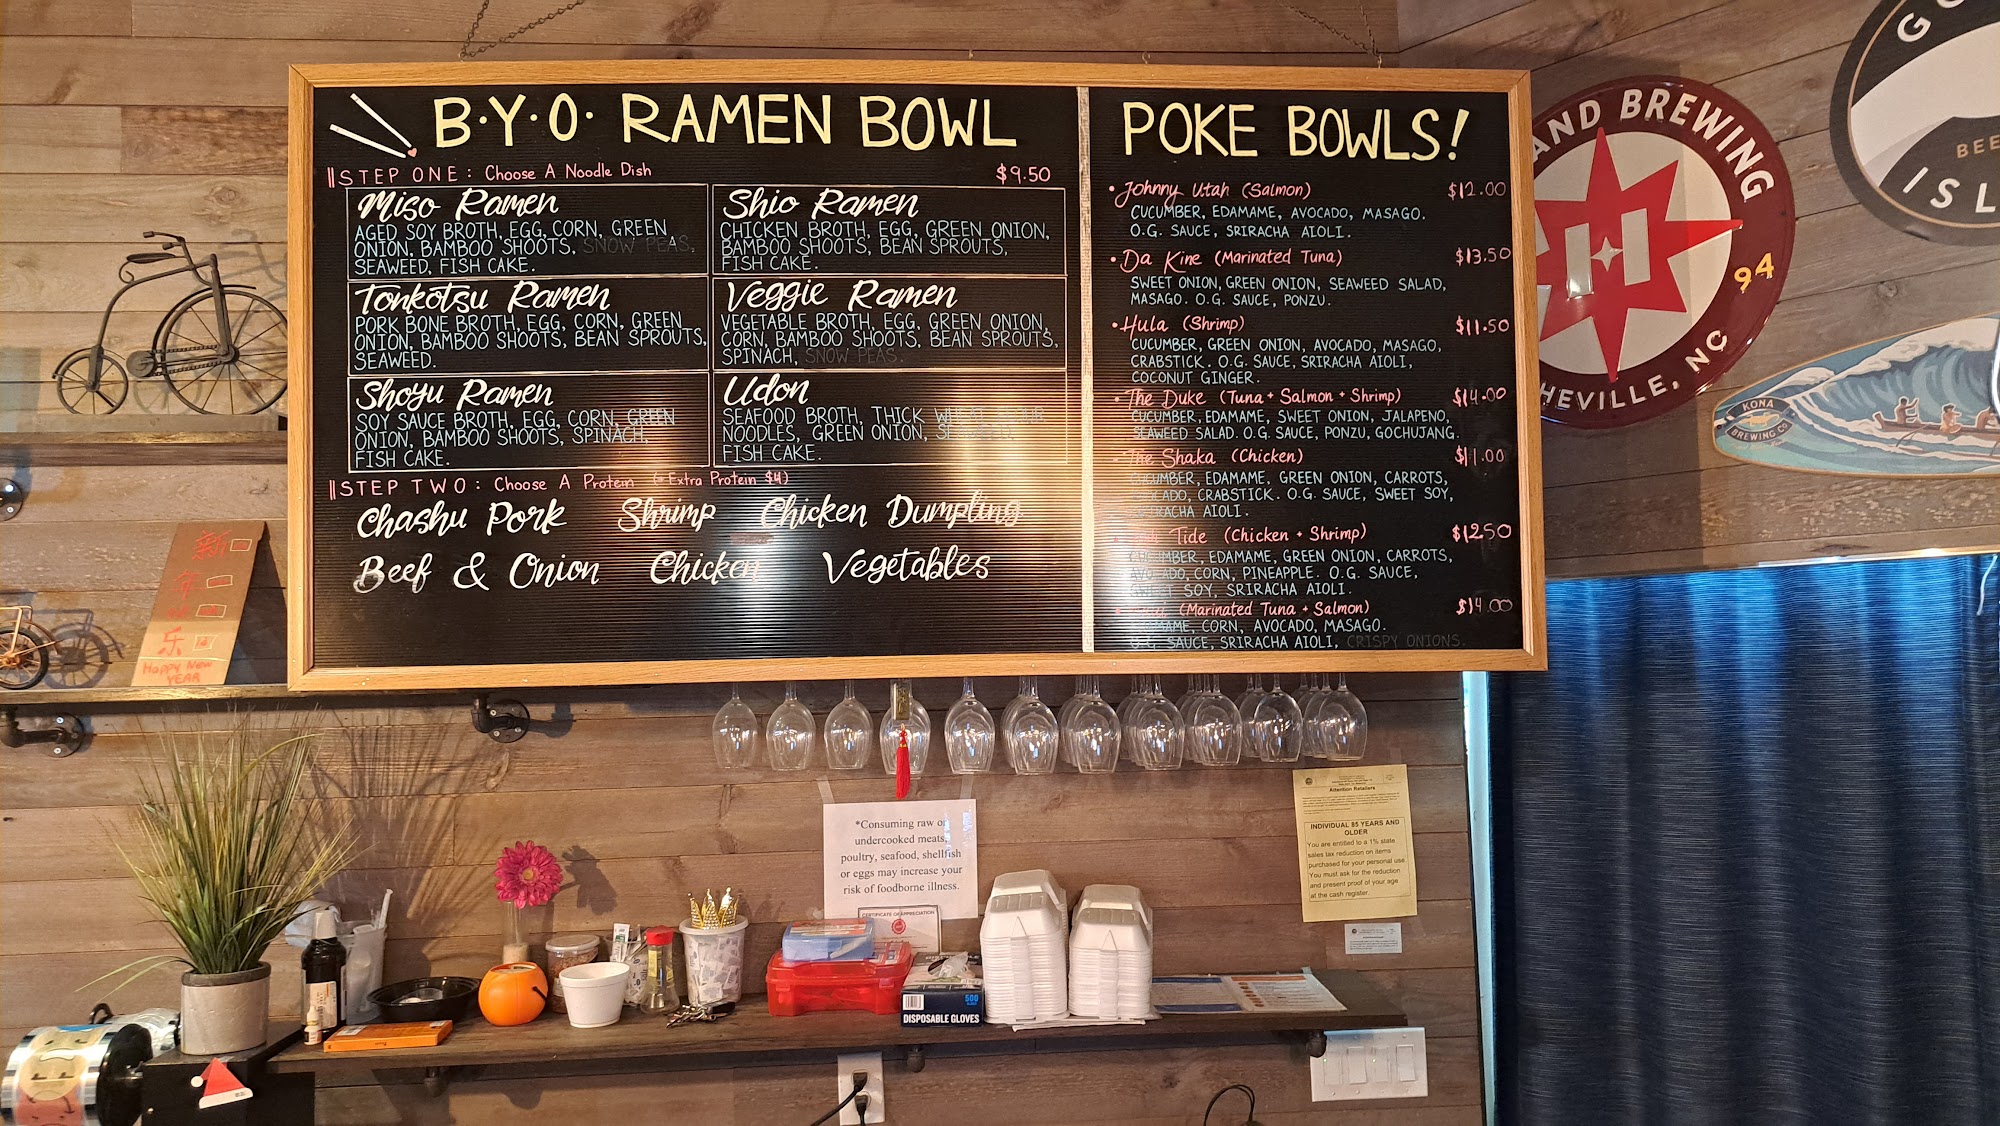 B.Y.O. RAMEN BOWL
STEP ONE: Choose A Noodle Dish $9.50
Miso Ramen
AGED SOY BROTH, EGG, CORN, GREEN
ONION, BAMBOO SHOOTS, SNOW PEAS,
SEAWEED, FISH CAKE.
Shio Ramen
CHICKEN BROTH, EGG, GREEN ONION,
BAMBOO SHOOTS, BEAN SPROUTS,
FISH CAKE.
Tonkotsu Ramen
PORK BONE BROTH, EGG, CORN, GREEN
ONION, BAMBOO SHOOTS, BEAN SPROUTS,
SEAWEED.
Veggie Ramen
VEGETABLE BROTH, EGG, GREEN ONION,
CORN, BAMBOO SHOOTS, BEAN SPROUTS,
SPINACH, SNOW PEAS.
Shoyu Ramen
SOY SAUCE BROTH, EGG, CORN, GREEN
ONION, BAMBOO SHOOTS, SPINACH,
FISH CAKE.
Udon
SEAFOOD BROTH, THICK WHEAT FLOUR
NOODLES, GREEN ONION,
FISH CAKE.
STEP TWO: Choose A Protein (+Extra Protein $4)
Chashu Pork Shrimp Chicken Dumpling
Beef & Onion Chicken Vegetables
POKE BOWLS!
• Johnny Utah (Salmon) $12.00
CUCUMBER, EDAMAME, AVOCADO, MASAGO.
O.G. SAUCE, SRIRACHA AIOLI.
• Da Kine (Marinated Tuna) $13.50
SWEET ONION, GREEN ONION, SEAWEED SALAD,
MASAGO. O.G. SAUCE, PONZU.
• Hula (Shrimp) $11.50
CUCUMBER, GREEN ONION, AVOCADO, MASAGO,
CRABSTICK. O.G. SAUCE, SRIRACHA AIOLI,
COCONUT GINGER.
• The Duke (Tuna + Salmon + Shrimp) $14.00
CUCUMBER, EDAMAME, SWEET ONION, JALAPENO,
SEAWEED SALAD. O.G. SAUCE, PONZU, GOCHUJANG.
The Shaka (Chicken) $11.00
CUCUMBER, EDAMAME, GREEN ONION, CARROTS,
AVOCADO, CRABSTICK. O.G. SAUCE, SWEET SOY,
SRIRACHA AIOLI.
Tide (Chicken + Shrimp) $12.50
CUCUMBER, EDAMAME, GREEN ONION, CARROTS,
AVOCADO, CORN, PINEAPPLE. O.G. SAUCE,
SWEET SOY, SRIRACHA AIOLI.
(Marinated Tuna + Salmon) $14.00
EDAMAME, CORN, AVOCADO, MASAGO.
O.G. SAUCE, SRIRACHA AIOLI, CRISPY ONIONS.
AND BREWING
94
HEVILLE, NC
BEE
ISL
KONA
BREWING CO
新
乐
Happy New
YEAR
*Consuming raw or
undercooked meats,
poultry, seafood, shellfish
or eggs may increase your
risk of foodborne illness.
CERTIFICATE OF APPRECIATION
500
DISPOSABLE GLOVES
Attention Retailers
INDIVIDUAL 85 YEARS AND
OLDER
You are entitled to a 1% state
sales tax reduction on items
purchased for your personal use
You must ask for the reduction
and present proof of your age
at the cash register.